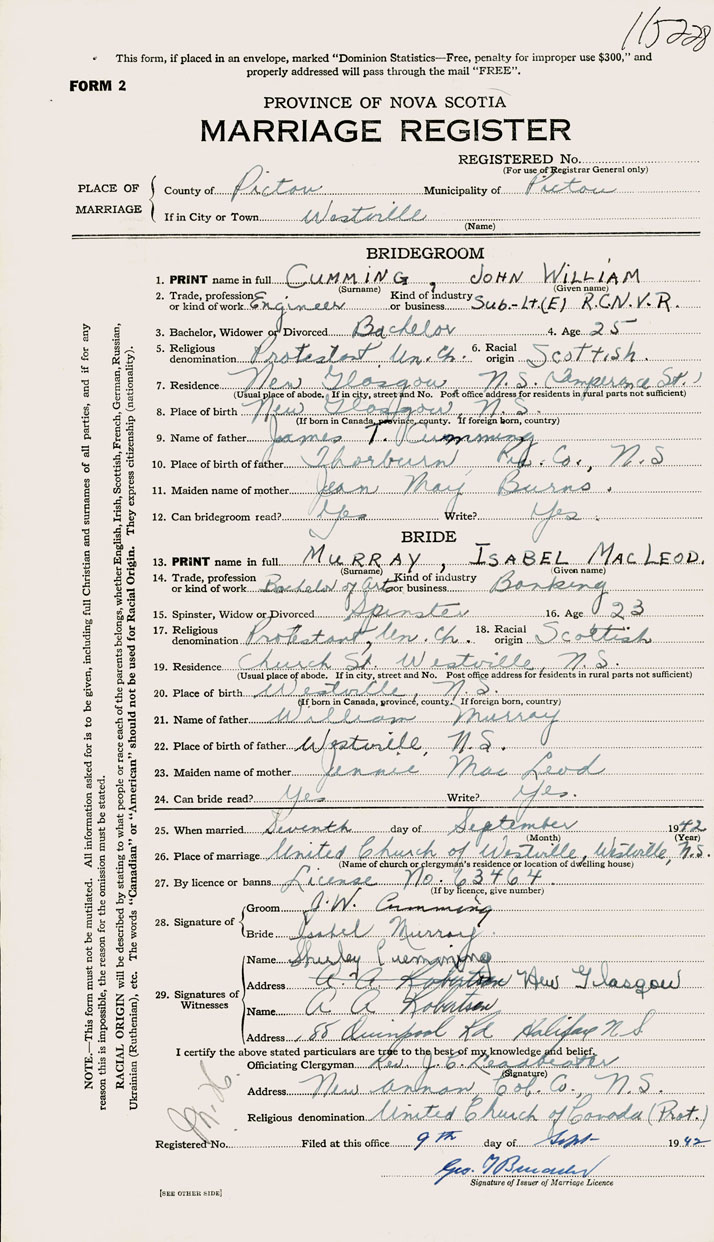 115228
This form, if placed in an envelope, marked "Dominion Statistics—Free, penalty for improper use $300," and
properly addressed will pass through the mail "FREE".
FORM 2
PROVINCE OF NOVA SCOTIA
MARRIAGE REGISTER
REGISTERED No.
(For use of Registrar General only)
PLACE OF MARRIAGE
County of Pictou Municipality of Pictou
If in City or Town Westville
(Name)
BRIDEGROOM
1. PRINT name in full CUMMING, JOHN WILLIAM
(Surname) (Given name)
2. Trade, profession or kind of work Engineer Kind of industry or business Sub-Lt.(E) R.C.N.V.R.
3. Bachelor, Widower or Divorced Bachelor 4. Age 25
5. Religious denomination Protestant, Un. Ch. 6. Racial origin Scottish.
7. Residence New Glasgow N.S. (Temperence St.)
(Usual place of abode. If in city, street and No. Post office address for residents in rural parts not sufficient)
8. Place of birth New Glasgow, N.S.
(If born in Canada, province, county. If foreign born, country)
9. Name of father James T. Cumming
10. Place of birth of father Thorburn, Pic. Co., N.S
11. Maiden name of mother Jean May Burns.
12. Can bridegroom read? Yes Write? Yes.
BRIDE
13. PRINT name in full MURRAY, ISABEL MACLEOD.
(Surname) (Given name)
14. Trade, profession or kind of work Bachelor of Arts Kind of industry or business Banking
15. Spinster, Widow or Divorced Spinster 16. Age 23
17. Religious denomination Protestant, Un. Ch. 18. Racial origin Scottish
19. Residence Church St. Westville, N.S.
(Usual place of abode. If in city, street and No. Post office address for residents in rural parts not sufficient)
20. Place of birth Westville, N.S.
(If born in Canada, province, county. If foreign born, country)
21. Name of father William Murray
22. Place of birth of father Westville, N.S.
23. Maiden name of mother Jennie MacLeod
24. Can bride read? Yes Write? Yes.
25. When married Seventh day of September 1942
(Month) (Year)
26. Place of marriage United Church of Westville, Westville, N.S.
(Name of church or clergyman's residence or location of dwelling house)
27. By licence or banns License No. 63464
(If by licence, give number)
28. Signature of
Groom J.W. Cumming
Bride Isabel Murray
29. Signatures of Witnesses
Name Shirley Cumming
Address A. A. Robertson New Glasgow
Name A A Robertson
Address 188 Quinpool Rd Halifax N S
I certify the above stated particulars are true to the best of my knowledge and belief.
Officiating Clergyman Rev. J. C.
(Signature)
Address New Annan Col. Co., N.S.
Religious denomination United Church of Canada (Prot.)
Registered No. Filed at this office 9th day of Sept- 1942
Geo. T
Signature of Issuer of Marriage Licence
[SEE OTHER SIDE]
NOTE.—This form must not be mutilated. All information asked for is to be given, including full Christian and surnames of all parties, and if for any
reason this is impossible, the reason for the omission must be stated.
RACIAL ORIGIN will be described by stating to what people or race each of the parents belongs, whether English, Irish, Scottish, French, German, Russian,
Ukrainian (Ruthenian), etc. The words "Canadian" or "American" should not be used for Racial Origin. They express citizenship (nationality).